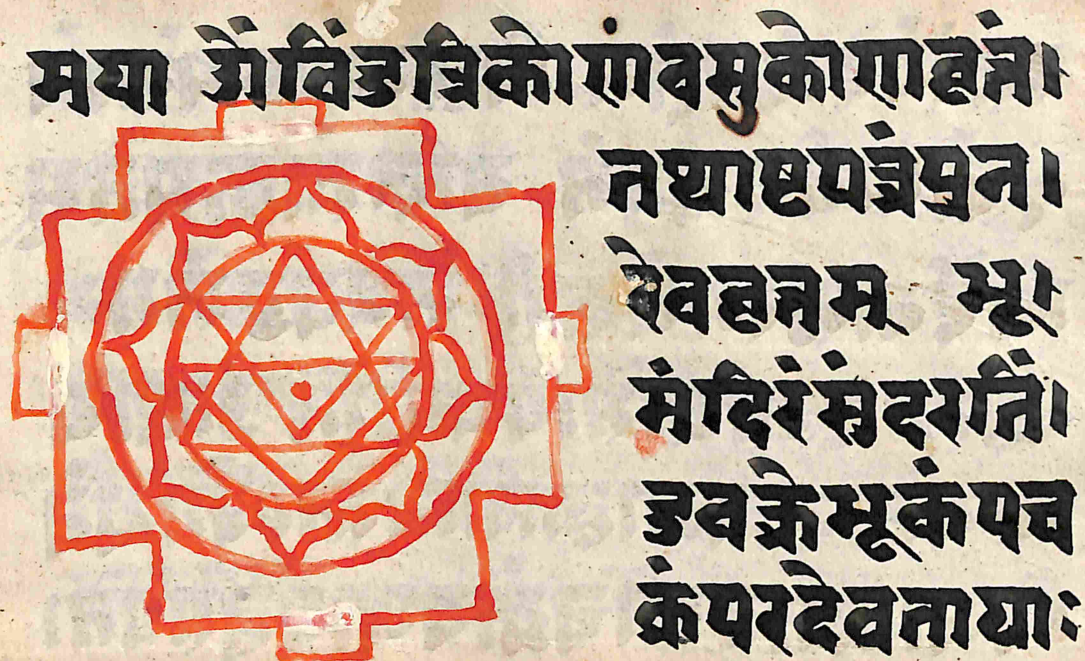 मया ओंविंडत्रिकोणवसुकोणवृत्तं।
तथाष्टपत्रंप्रत।
देववृत्तम् भू।
मंदिरंसुंदरतिं।
डवक्रेभूकंपच
क्रंपरदेवतायाः